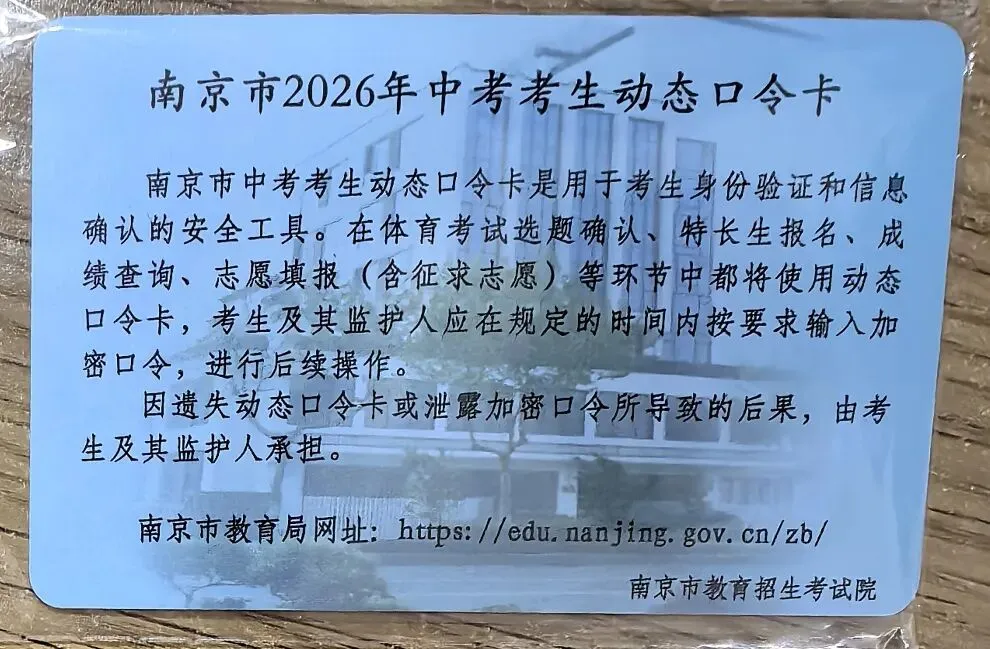 南京市2026年中考考生动态口令卡
南京市中考考生动态口令卡是用于考生身份验证和信息
确认的安全工具。在体育考试选题确认、特长生报名、成
绩查询、志愿填报（含征求志愿）等环节中都将使用动态
口令卡，考生及其监护人应在规定的时间内按要求输入加
密口令，进行后续操作。
因遗失动态口令卡或泄露加密口令所导致的后果，由考
生及其监护人承担。
南京市教育局网址：https://edu.nanjing.gov.cn/zb/
南京市教育招生考试院